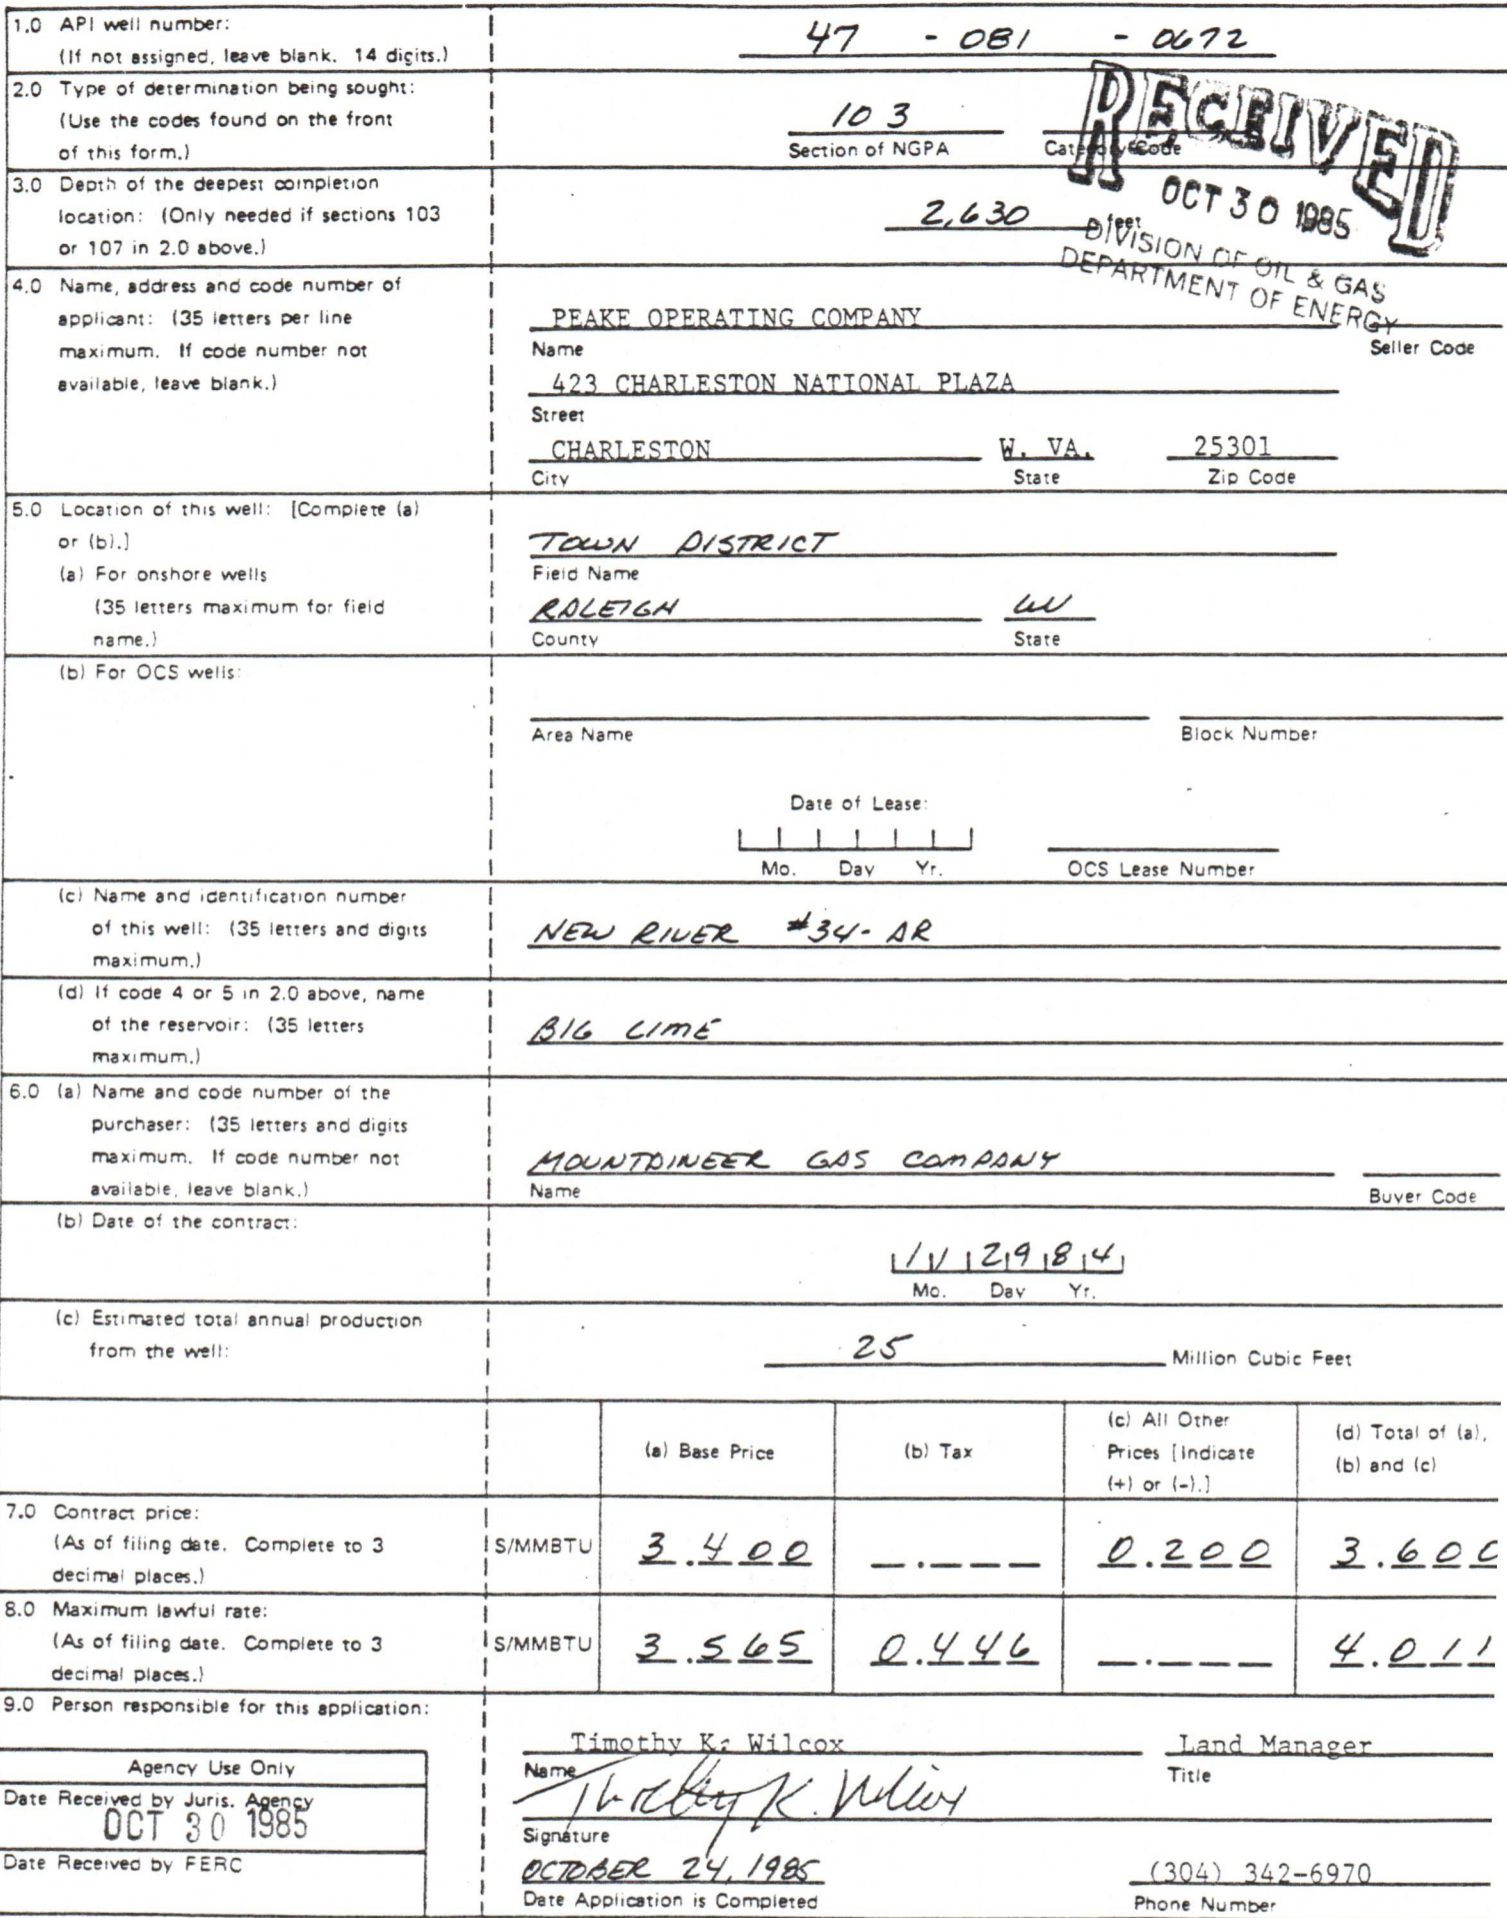 1.0 API well number:
(If not assigned, leave blank. 14 digits.)
47 - 081 - 0672
2.0 Type of determination being sought:
(Use the codes found on the front
of this form.)
103
Section of NGPA
Category Code
RECEIVED
OCT 30 1985
DIVISION OF OIL & GAS
DEPARTMENT OF ENERGY
3.0 Depth of the deepest completion
location: (Only needed if sections 103
or 107 in 2.0 above.)
2,630 feet
4.0 Name, address and code number of
applicant: (35 letters per line
maximum. If code number not
available, leave blank.)
PEAKE OPERATING COMPANY
Name Seller Code
423 CHARLESTON NATIONAL PLAZA
Street
CHARLESTON W. VA. 25301
City State Zip Code
5.0 Location of this well: [Complete (a)
or (b).]
(a) For onshore wells
(35 letters maximum for field
name.)
TOWN DISTRICT
Field Name
RALEIGH WV
County State
(b) For OCS wells:
Area Name Block Number
Date of Lease:
Mo. Day Yr. OCS Lease Number
(c) Name and identification number
of this well: (35 letters and digits
maximum.)
NEW RIVER #34-AR
(d) If code 4 or 5 in 2.0 above, name
of the reservoir: (35 letters
maximum.)
BIG LIME
6.0 (a) Name and code number of the
purchaser: (35 letters and digits
maximum. If code number not
available, leave blank.)
MOUNTAINEER GAS COMPANY
Name Buyer Code
(b) Date of the contract:
1 1 2 9 8 4
Mo. Day Yr.
(c) Estimated total annual production
from the well:
25 Million Cubic Feet
(a) Base Price
(b) Tax
(c) All Other
Prices [Indicate
(+) or (-).]
(d) Total of (a),
(b) and (c)
7.0 Contract price:
(As of filing date. Complete to 3
decimal places.)
S/MMBTU 3.400 0.200 3.600
8.0 Maximum lawful rate:
(As of filing date. Complete to 3
decimal places.)
S/MMBTU 3.565 0.446 4.011
9.0 Person responsible for this application:
Agency Use Only
Date Received by Juris. Agency
OCT 30 1985
Date Received by FERC
Timothy K. Wilcox Land Manager
Name Title
Timothy K. Wilcox
Signature
OCTOBER 24, 1985 (304) 342-6970
Date Application is Completed Phone Number